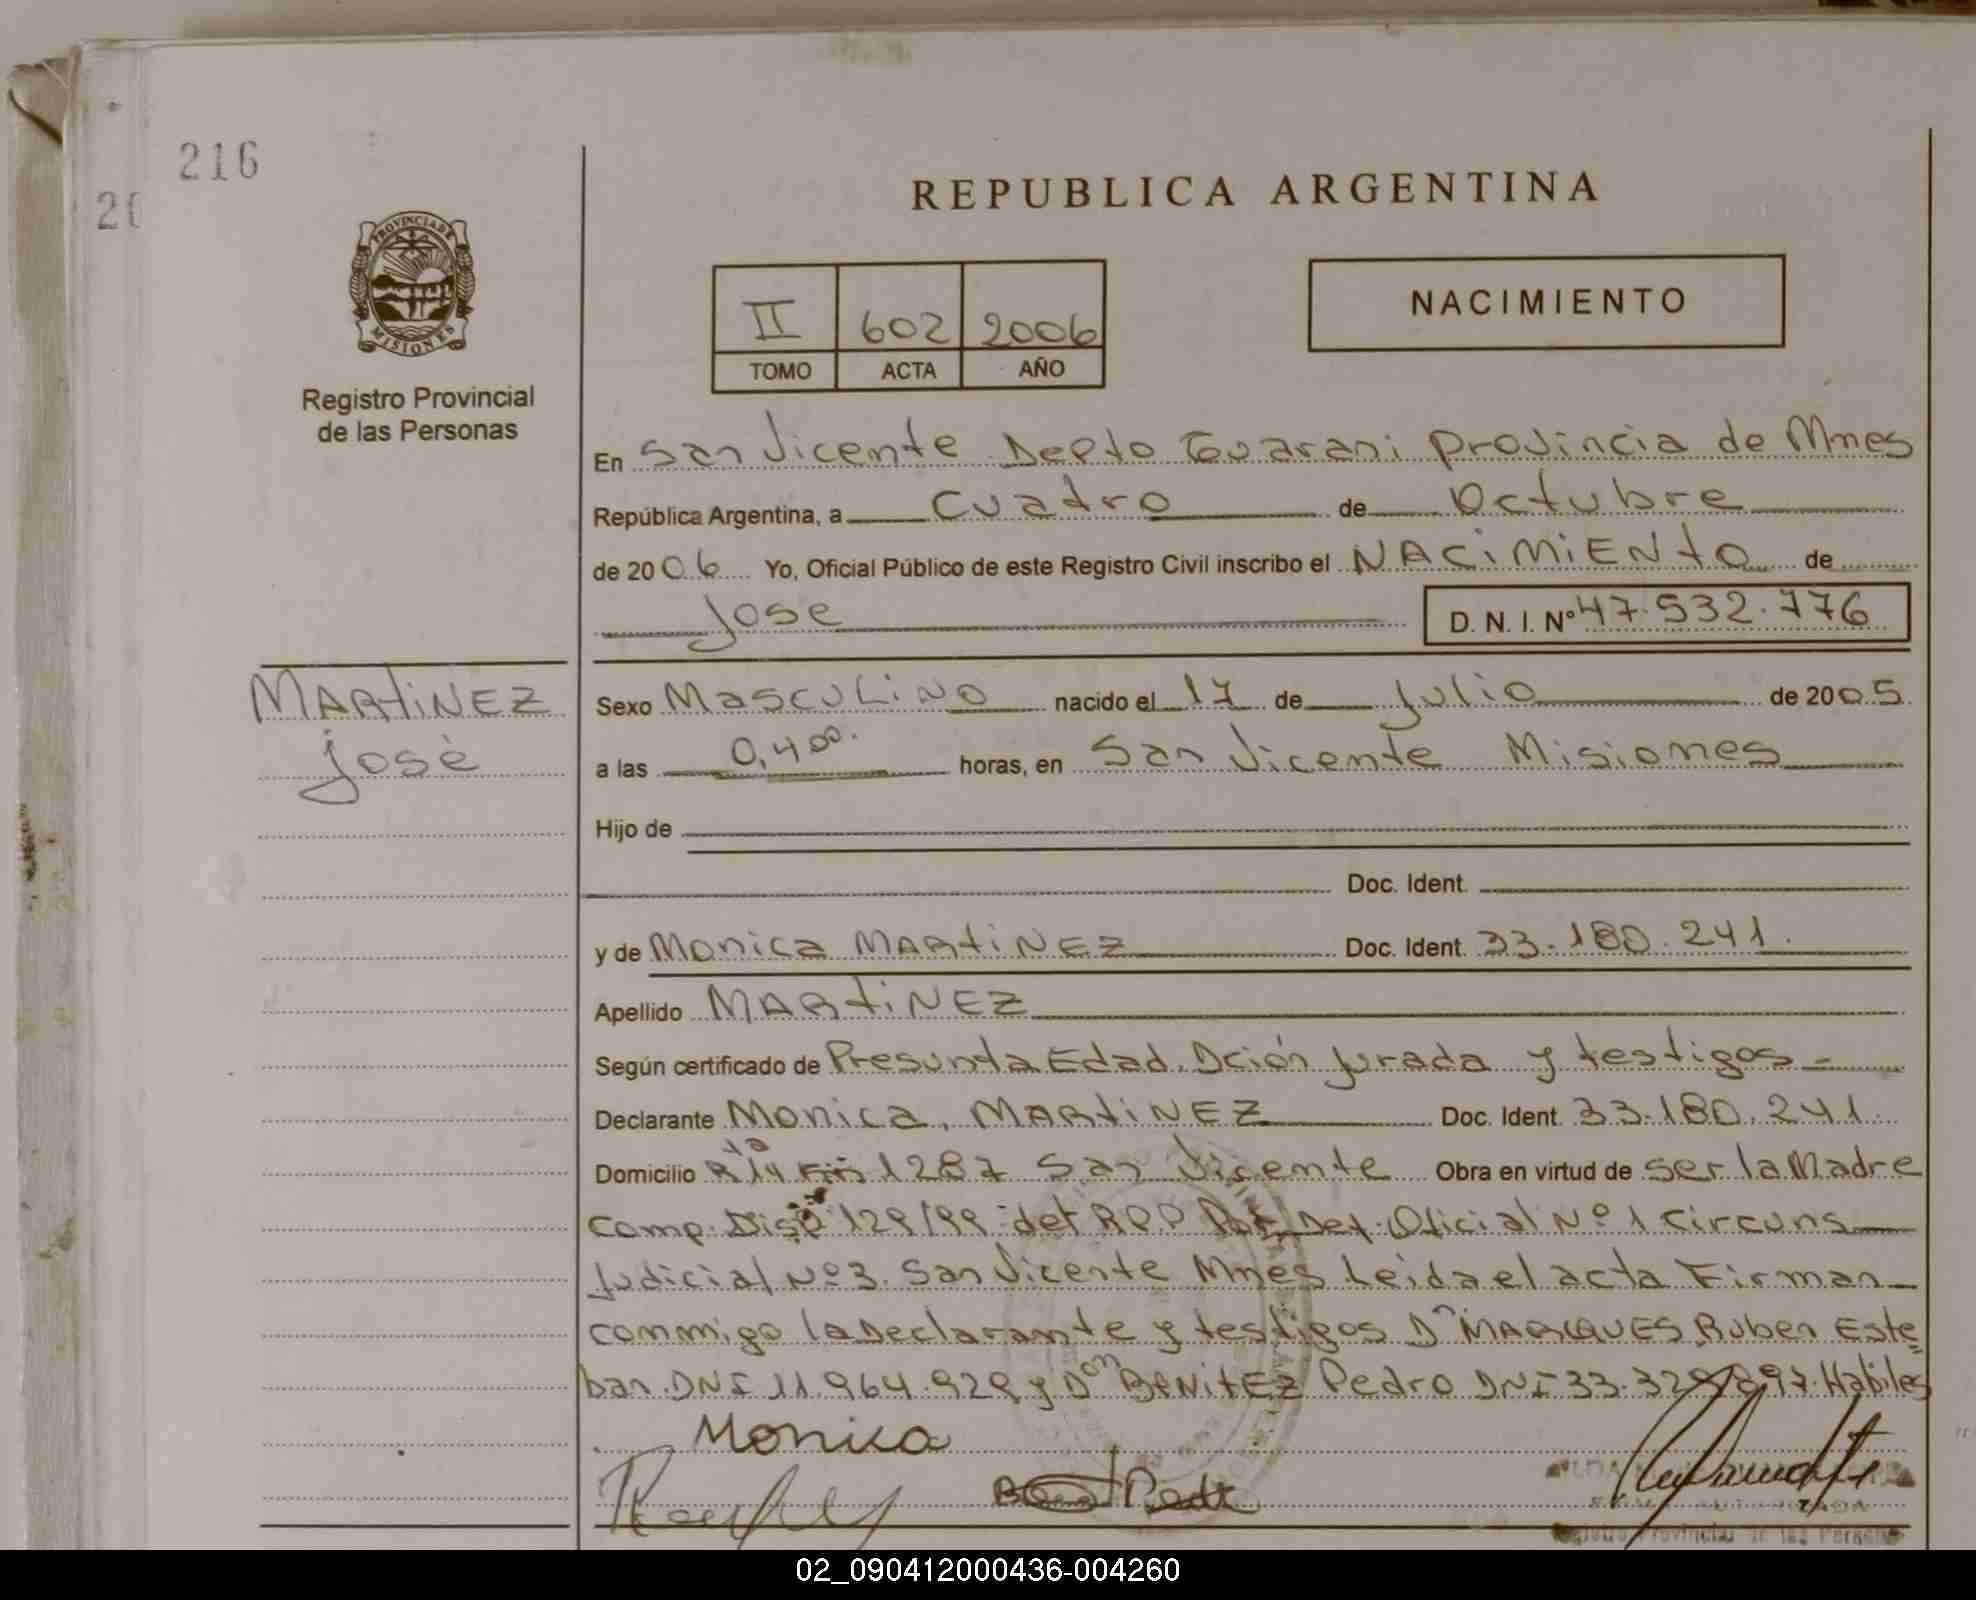 216
20
REPUBLICA ARGENTINA
PROVINCIA DE
MISIONES
Registro Provincial
de las Personas
II 602 2006
TOMO ACTA AÑO
NACIMIENTO
En San Vicente Depto Guarani Provincia de Mnes
República Argentina, a Cuatro de Octubre
de 2006 Yo, Oficial Público de este Registro Civil inscribo el NACiMiENtO de
Jose D. N. I. Nº 47.532.776
MARtiNEZ
José
Sexo MascuLiNO nacido el 17 de Julio de 2005
a las 0,4 00. horas, en San Vicente Misiones
Hijo de
Doc. Ident.
y de Monica MARtiNEZ Doc. Ident. 33.180.241.
Apellido MARtiNEZ
Según certificado de Presunta Edad. Dción Jurada y testigos =
Declarante Monica, MARtiNEZ Doc. Ident. 33.180.241.
Domicilio 1287 San Vicente Obra en virtud de ser la Madre
Comp. Disp 129/99 del RPP Por Def. Oficial Nº 1 Circuns
Judicial Nº 3. San Vicente Mnes Leida el acta Firman
conmigo la Declarante y testigos Dn MARQUES Ruben Este=
ban DNI 11.964.929 y Don BENitEZ Pedro DNI 33.329.297. Habiles
Monica
Pedro
Registro Provincial de las Personas
02_090412000436-004260